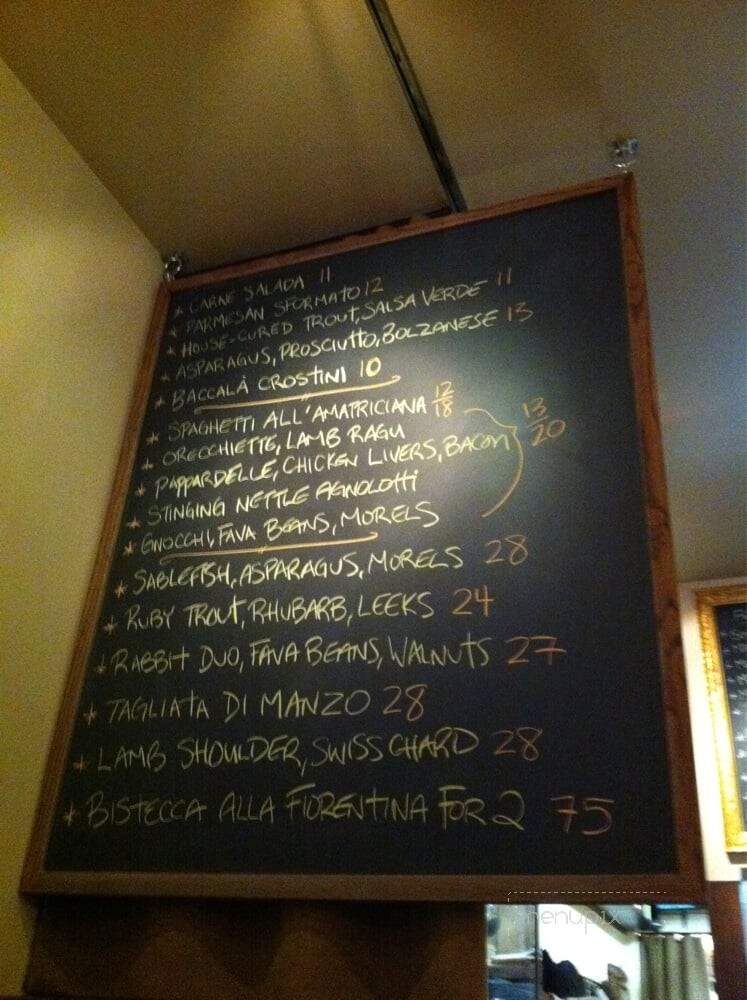 * CARNE SALADA 11
* PARMESAN SFORMATO 12
* HOUSE-CURED TROUT, SALSA VERDE 11
* ASPARAGUS, PROSCIUTTO, BOLZANESE 13
* BACCALÀ CROSTINI 10
* SPAGHETTI ALL'AMATRICIANA 12/18
* ORECCHIETTE, LAMB RAGU
* PAPPARDELLE, CHICKEN LIVERS, BACON 13/20
* STINGING NETTLE AGNOLOTTI
* GNOCCHI, FAVA BEANS, MORELS
* SABLEFISH, ASPARAGUS, MORELS 28
* RUBY TROUT, RHUBARB, LEEKS 24
* RABBIT DUO, FAVA BEANS, WALNUTS 27
* TAGLIATA DI MANZO 28
* LAMB SHOULDER, SWISS CHARD 28
* BISTECCA ALLA FIORENTINA FOR 2 75
menupix